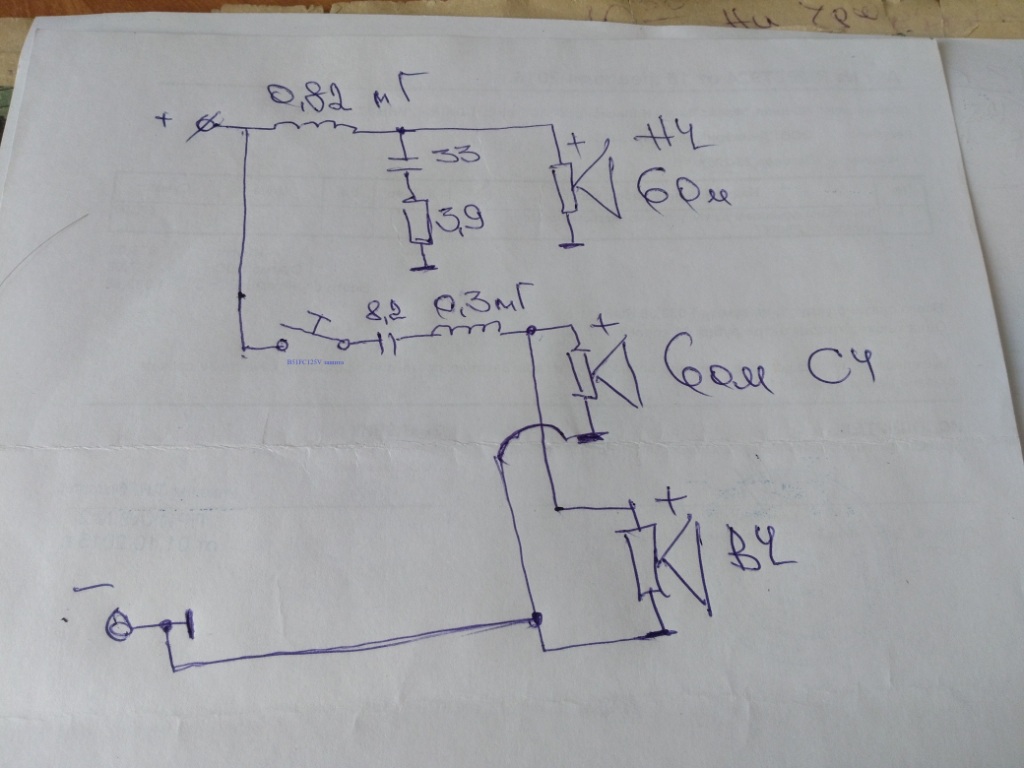 + 0,82 мГ
33
+ НЧ
3,9
6 Ом
8,2 0,3 мГ
+
6 Ом СЧ
+
ВЧ
−